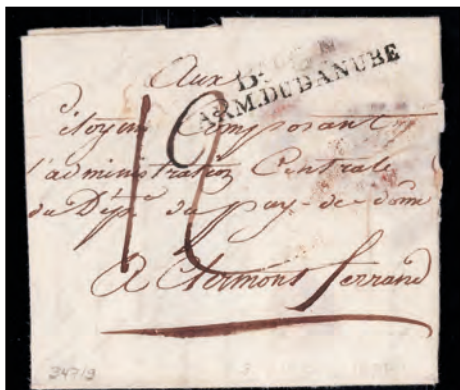 Aux
ARM. DU DANUBE
Citoyens Composant
l'administration Centrale
du Dépt. du puy-de-dôme
A Clermont ferrand
347/9